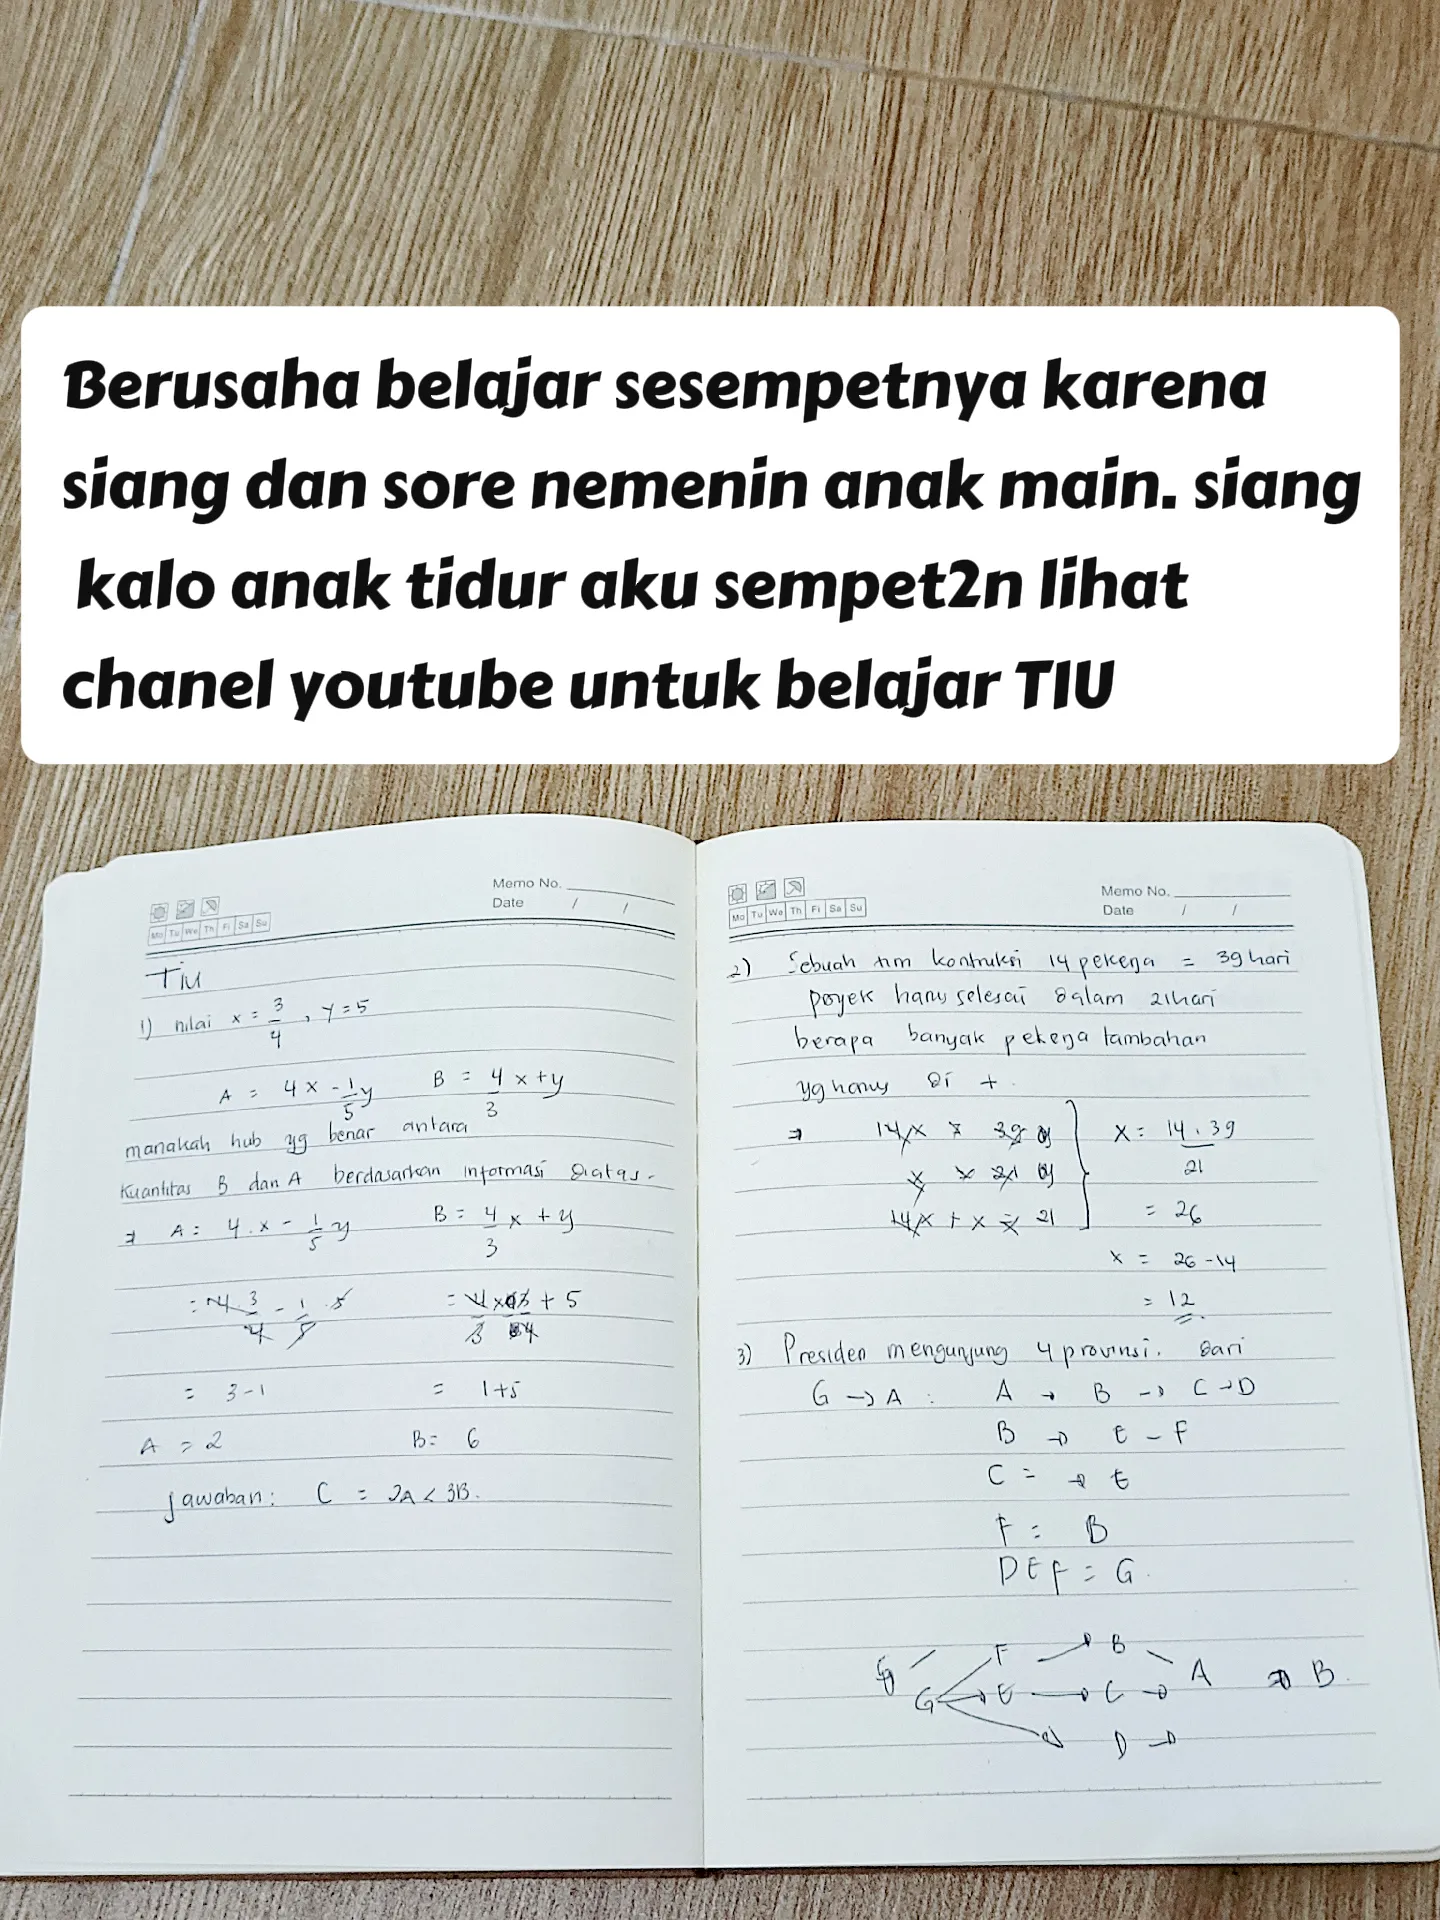 Berusaha belajar sesempetnya karena
siang dan sore nemenin anak main. siang
kalo anak tidur aku sempet2n lihat
chanel youtube untuk belajar TIU
Memo No.
Date / /
Mo Tu We Th Fi Sa Su
TIU
1) nilai x = 3/4 , y = 5
A = 4x - 1/5 y B = 4/3 x + y
manakah hub yg benar antara
Kuantitas B dan A berdasarkan informasi diatas.
⇒ A = 4.x - 1/5 y B = 4/3 x + y
= 4.3/4 - 1/5 . 5 = 4/3 x 3/4 + 5
= 3-1 = 1+5
A = 2 B = 6
jawaban : C = 2A < 3B.
Memo No.
Date / /
Mo Tu We Th Fi Sa Su
2) Sebuah tim kontruksi 14 pekerja = 39 hari
poyek harus selesai dalam 21 hari
berapa banyak pekerja tambahan
yg harus di +.
⇒ x = 14 . 39 / 21
= 26
x = 26 - 14
= 12
3) Presiden mengunjung 4 provinsi. dari
G → A : A → B → C → D
B → E - F
C = → E
F = B
D E F = G.
F → B
G → E → C → A ⇒ B.
D →